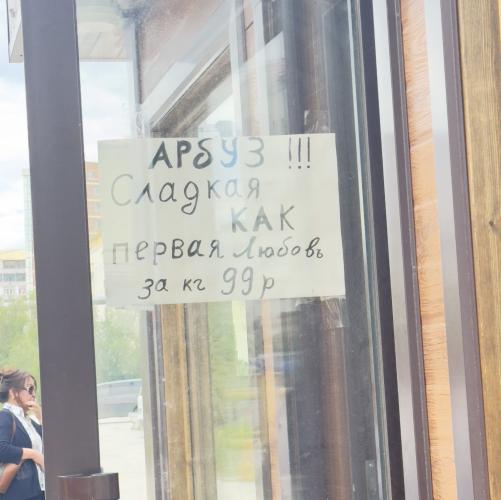 АРБУЗ !!!
Сладкая
КАК
первая Любовь
за кг 99р